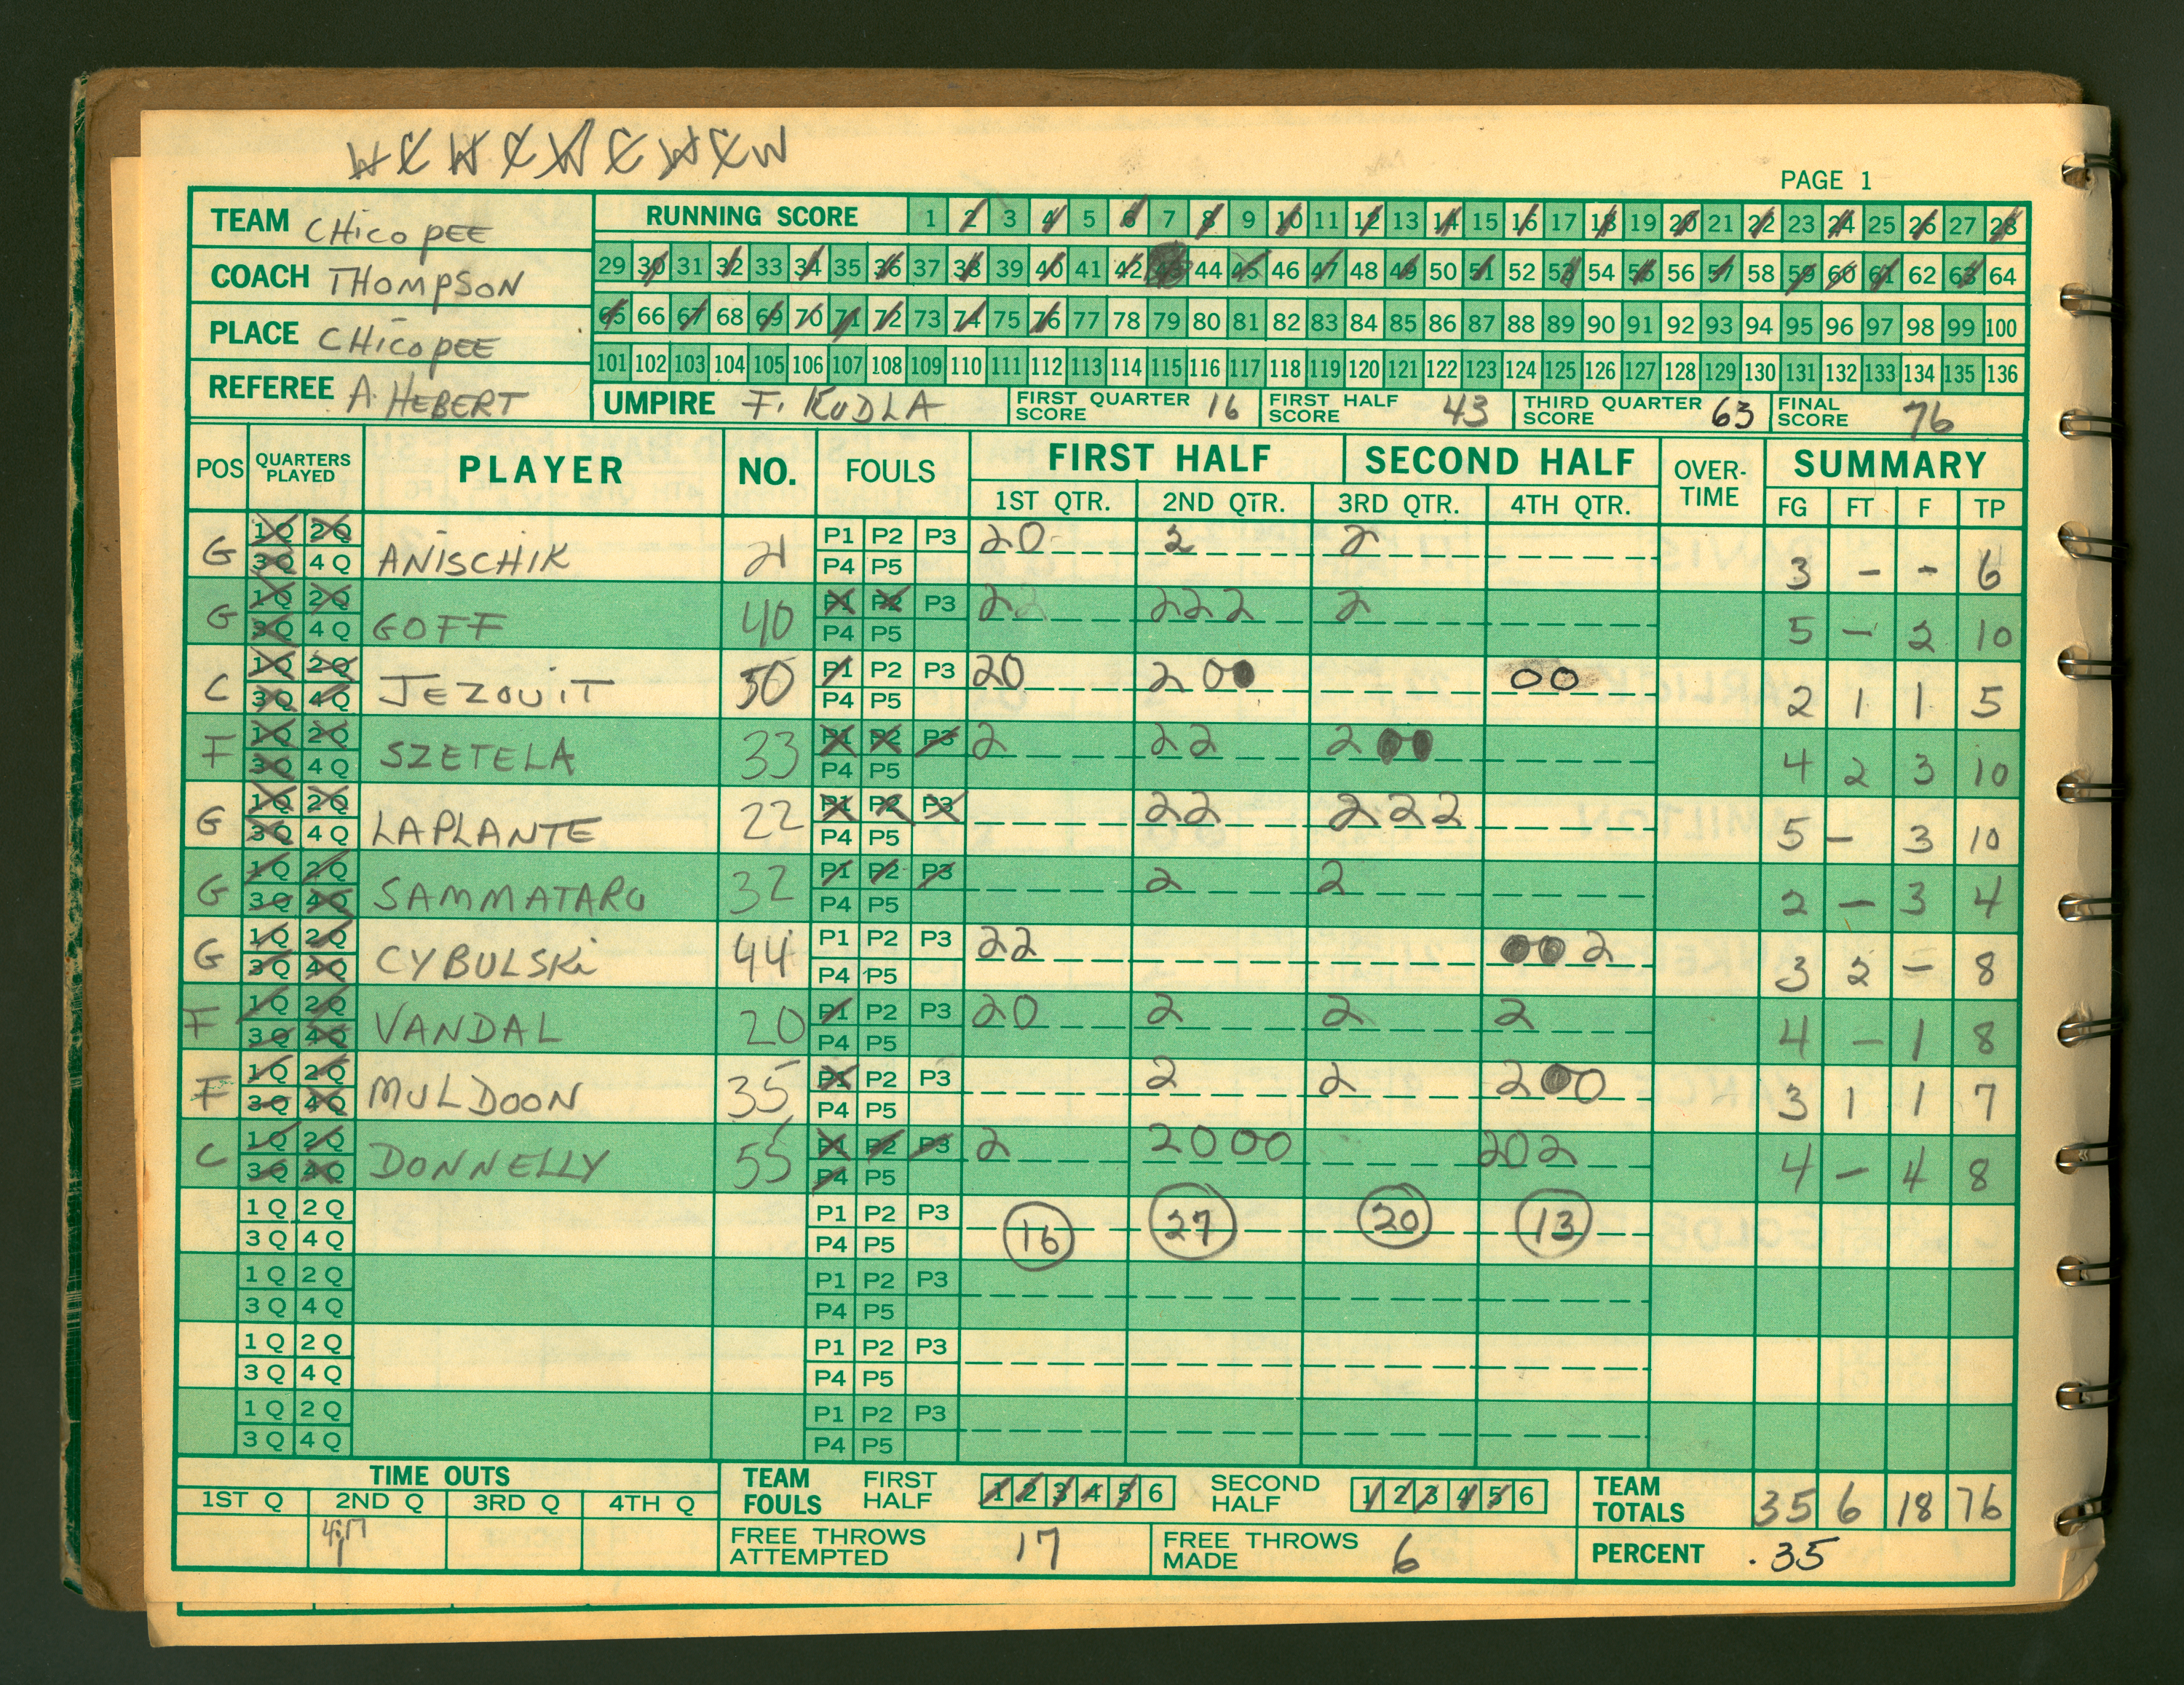 W C W C W C W C W
PAGE 1
TEAM CHicOPEE
COACH THOMPSON
PLACE CHicOPEE
REFEREE A. HEBERT
RUNNING SCORE 1 2 3 4 5 6 7 8 9 10 11 12 13 14 15 16 17 18 19 20 21 22 23 24 25 26 27 28
29 30 31 32 33 34 35 36 37 38 39 40 41 42 43 44 45 46 47 48 49 50 51 52 53 54 55 56 57 58 59 60 61 62 63 64
65 66 67 68 69 70 71 72 73 74 75 76 77 78 79 80 81 82 83 84 85 86 87 88 89 90 91 92 93 94 95 96 97 98 99 100
101 102 103 104 105 106 107 108 109 110 111 112 113 114 115 116 117 118 119 120 121 122 123 124 125 126 127 128 129 130 131 132 133 134 135 136
UMPIRE F. KUDLA FIRST QUARTER SCORE 16 FIRST HALF SCORE 43 THIRD QUARTER SCORE 63 FINAL SCORE 76
POS QUARTERS PLAYED PLAYER NO. FOULS FIRST HALF SECOND HALF OVER-TIME SUMMARY
1ST QTR. 2ND QTR. 3RD QTR. 4TH QTR. FG FT F TP
G 1Q 2Q 3Q 4Q ANiSCHIK 21 P1 P2 P3 P4 P5 20 2 2 3 - - 6
G 1Q 2Q 3Q 4Q GOFF 40 P1 P2 P3 P4 P5 22 222 2 5 - 2 10
C 1Q 2Q 3Q 4Q JEZOUIT 50 P1 P2 P3 P4 P5 20 200 00 2 1 1 5
F 1Q 2Q 3Q 4Q SZETELA 33 P1 P2 P3 P4 P5 2 22 200 4 2 3 10
G 1Q 2Q 3Q 4Q LAPLANTE 22 P1 P2 P3 P4 P5 22 222 5 - 3 10
G 1Q 2Q 3Q 4Q SAMMATARO 32 P1 P2 P3 P4 P5 2 2 2 - 3 4
G 1Q 2Q 3Q 4Q CYBULSKi 44 P1 P2 P3 P4 P5 22 002 3 2 - 8
F 1Q 2Q 3Q 4Q VANDAL 20 P1 P2 P3 P4 P5 20 2 2 2 4 - 1 8
F 1Q 2Q 3Q 4Q MULDOON 35 P1 P2 P3 P4 P5 2 2 200 3 1 1 7
C 1Q 2Q 3Q 4Q DONNELLY 55 P1 P2 P3 P4 P5 2 2000 202 4 - 4 8
1Q 2Q 3Q 4Q P1 P2 P3 P4 P5 16 27 20 13
1Q 2Q 3Q 4Q P1 P2 P3 P4 P5
1Q 2Q 3Q 4Q P1 P2 P3 P4 P5
1Q 2Q 3Q 4Q P1 P2 P3 P4 P5
TIME OUTS
1ST Q 2ND Q 3RD Q 4TH Q
TEAM FOULS FIRST HALF 1 2 3 4 5 6 SECOND HALF 1 2 3 4 5 6 TEAM TOTALS 35 6 18 76
FREE THROWS ATTEMPTED 17 FREE THROWS MADE 6 PERCENT .35